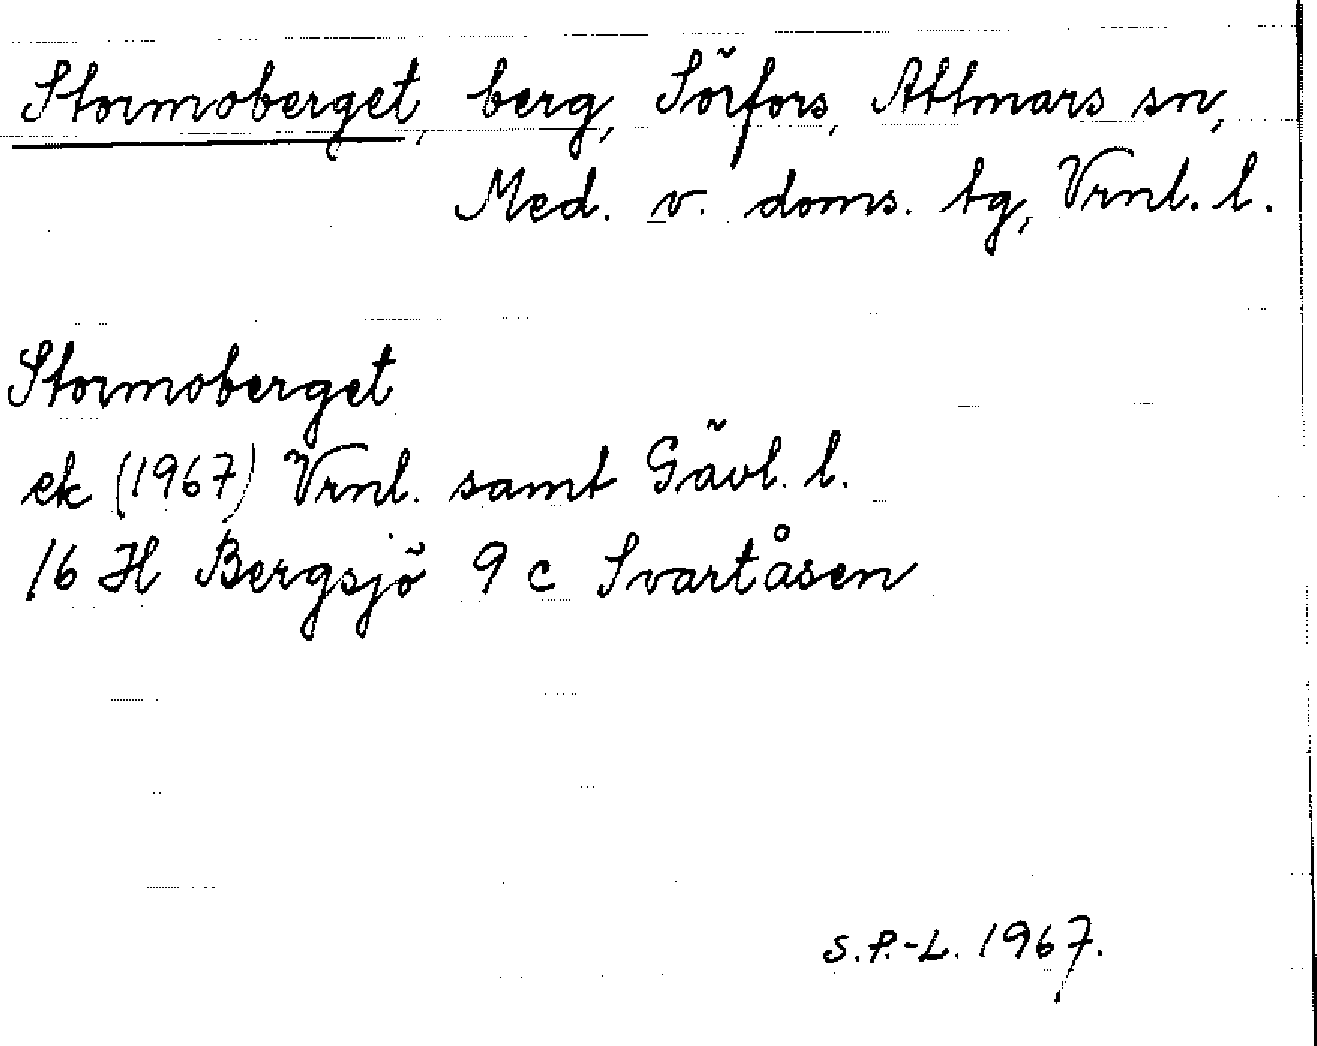 Stormoberget, berg, Sörfors, Attmars sn,
Med. v. doms. tg, Vrnl. l.
Stormoberget
ek (1967) Vrnl. samt Gävl. l.
16 H Bergsjö 9 c Svartåsen
S.P.-L. 1967.